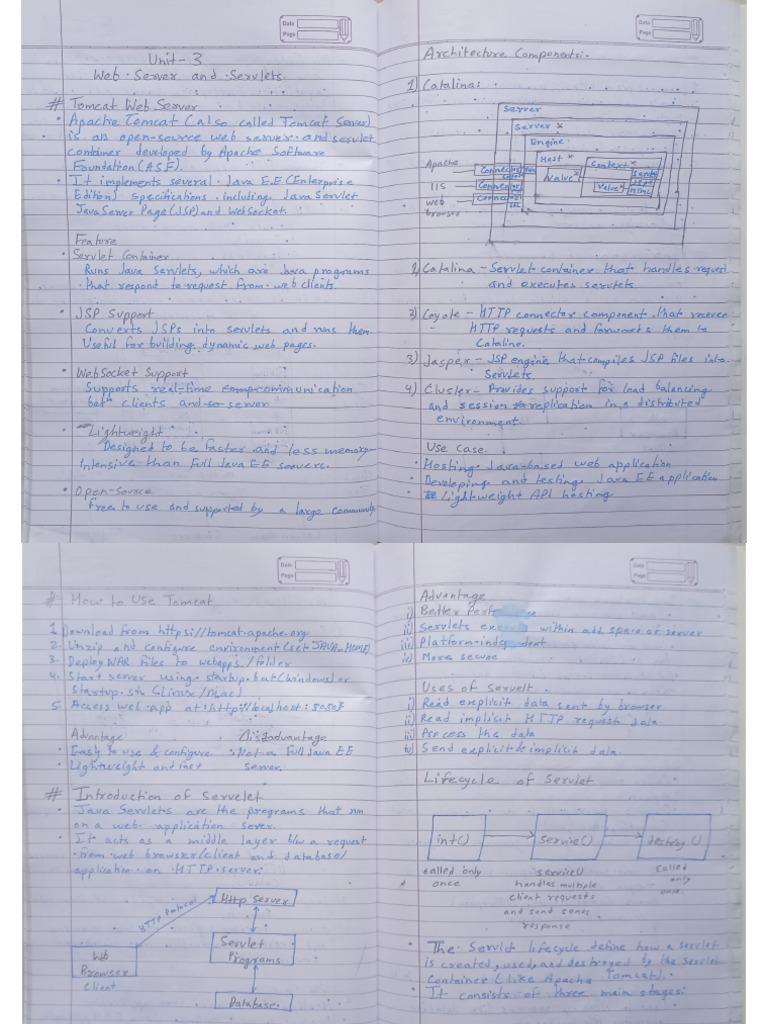 Date
Page
Unit-3
Web Server and Servlets
# Tomcat Web Server
• Apache Tomcat (also called Tomcat Server)
is an open-source web server and servlet
container developed by Apache Software
Foundation (ASF).
• It implements several Java EE (Enterprise
Edition) specifications including Java Servlet
JavaServer Page (JSP) and WebSocket.
Feature
• Servlet Container
Runs Java Servlets, which are Java programs
that respond to request from web clients.
• JSP Support
Converts JSPs into servlets and runs them.
Useful for building dynamic web pages.
• WebSocket Support
Supports real-time communication
betn clients and server
• Lightweight
Designed to be faster and less memory-
intensive than full Java EE servers.
• Open-Source
Free to use and supported by a large community
Date
Page
Architecture Components:-
1) Catalina:
Server
Server *
Engine
Host *
Context *
Valve *
Valve *
Apache
IIS
web
browser
Connec
Connec
Connec
1) Catalina - Servlet container that handles request
and executes servlets
2) Coyote - HTTP connector component that receives
HTTP requests and forwards them to
Cataline.
3) Jasper - JSP engine that compiles JSP files into
Servlets
4) Cluster - Provides support for load balancing
and session replication in a distributed
environment.
Use Case
• Hosting Java-based web application
• Developing and testing Java EE application
• Lightweight API hosting
Date
Page
# How to Use Tomcat
1. Download from https://tomcat.apache.org
2. Unzip and configure environment (set JAVA_HOME)
3. Deploy WAR files to webapps/folder
4. Start server using startup.bat (windows) or
startup.sh (Linux/Mac)
5. Access web app at http://localhost:8080
Advantage Disadvantage
• Easy to use & configure • Not a Full Java EE
• Lightweight and fast server.
# Introduction of Servelet
• Java Servlets are the programs that run
on a web application server.
• It acts as a middle layer b/w a request
from web browser/client and database/
application on HTTP server.
HTTP Protocol
Http Server
Servlet
Programs
Database
Wb
Browser
Client
Date
Page
Advantage
i) Better
ii) Servlets within add space of server
iii) Platform-
iv) More secure
Uses of Servelt
i) Read explicit data sent by browser
ii) Read implicit HTTP request data
iii) Process the data
iv) Send explicit & implicit data.
Lifecycle of Servlet
int()
servie()
destroy()
called only
once
service()
handles multiple
client requests
and send
response
Called
only
once
• The Servlet lifecycle define how a servlet
is created, used, and destroyed by the servlet
container (like Apache Tomcat).
• It consists of three main stages: